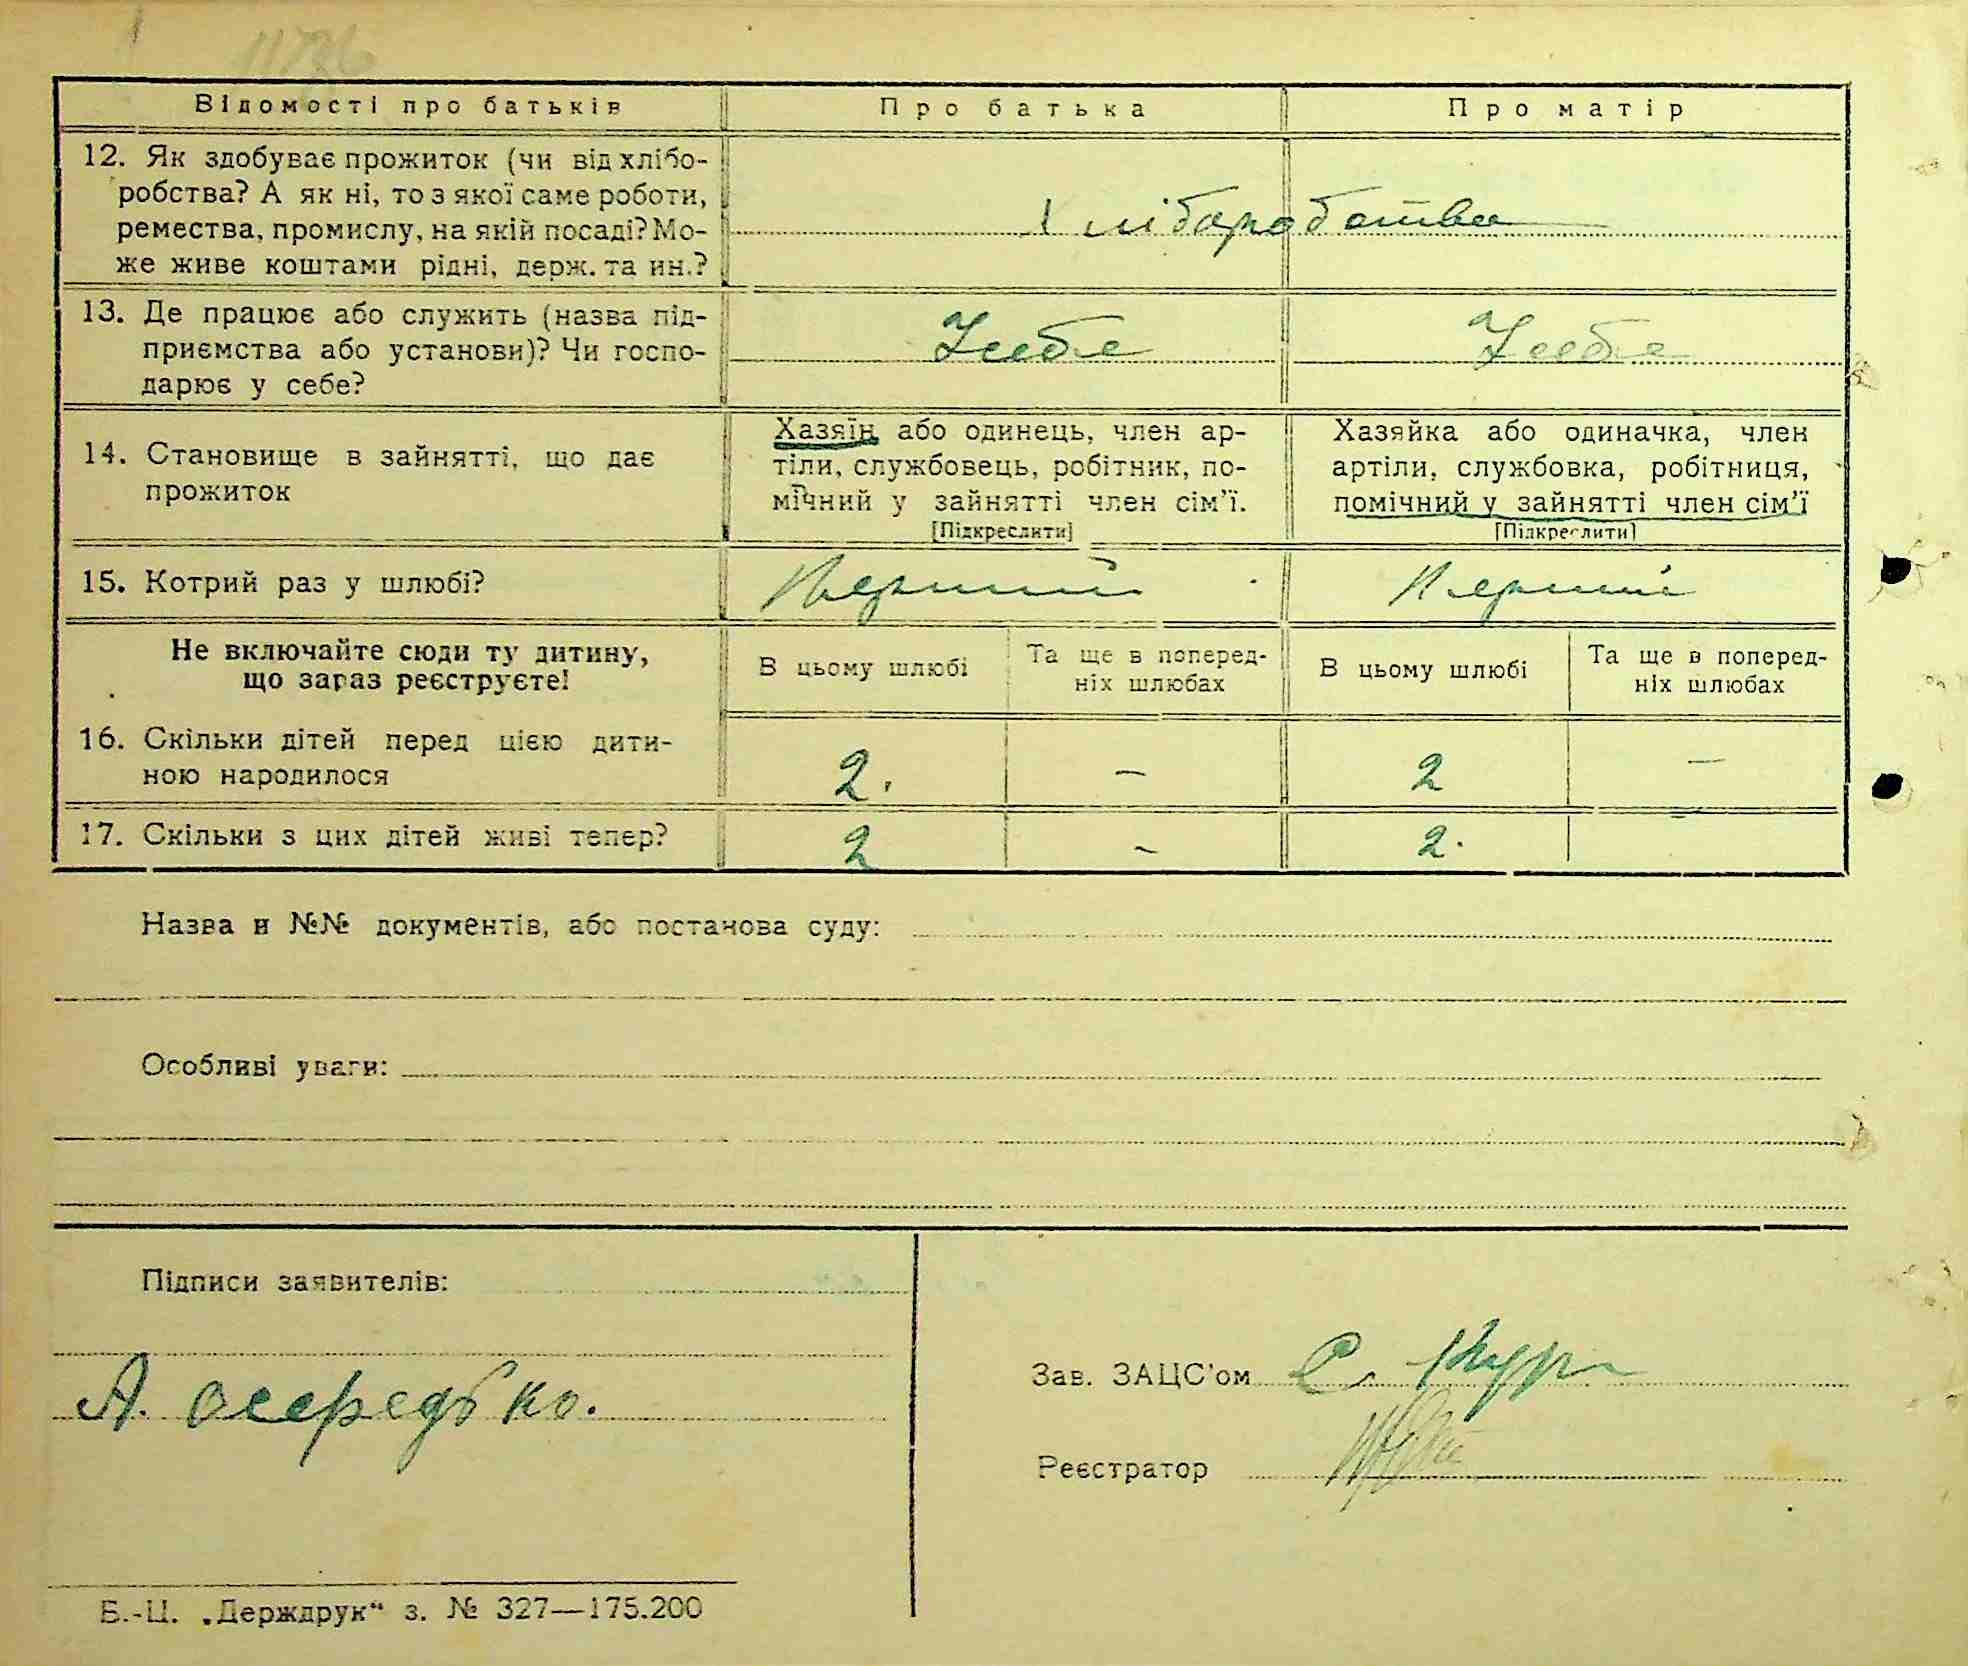 Відомості про батьків
Про батька
Про матір
12. Як здобуває прожиток (чи від хлібо-
робства? А як ні, то з якої саме роботи,
ремества, промислу, на якій посаді? Мо-
же живе коштами рідні, держ. та ин.?
Хліборобства
13. Де працює або служить (назва під-
приємства або установи)? Чи госпо-
дарює у себе?
У себе
У себе
14. Становище в зайнятті, що дає
прожиток
Хазяїн або одинець, член ар-
тіли, службовець, робітник, по-
мічний у зайнятті член сім'ї.
[Підкреслити]
Хазяйка або одиначка, член
артіли, службовка, робітниця,
помічний у зайнятті член сім'ї
[Підкреслити]
15. Котрий раз у шлюбі?
Перший
Перший
Не включайте сюди ту дитину,
що зараз реєструєте!
В цьому шлюбі
Та ще в поперед-
ніх шлюбах
В цьому шлюбі
Та ще в поперед-
ніх шлюбах
16. Скільки дітей перед цією дити-
ною народилося
2. – 2 –
17. Скільки з цих дітей живі тепер?
2 – 2. –
Назва и №№ документів, або постанова суду:
Особливі уваги:
Підписи заявителів:
А. осередько.
Зав. ЗАЦС'ом С.
Реєстратор
Б.-Ц. „Держдрук" з. № 327—175.200